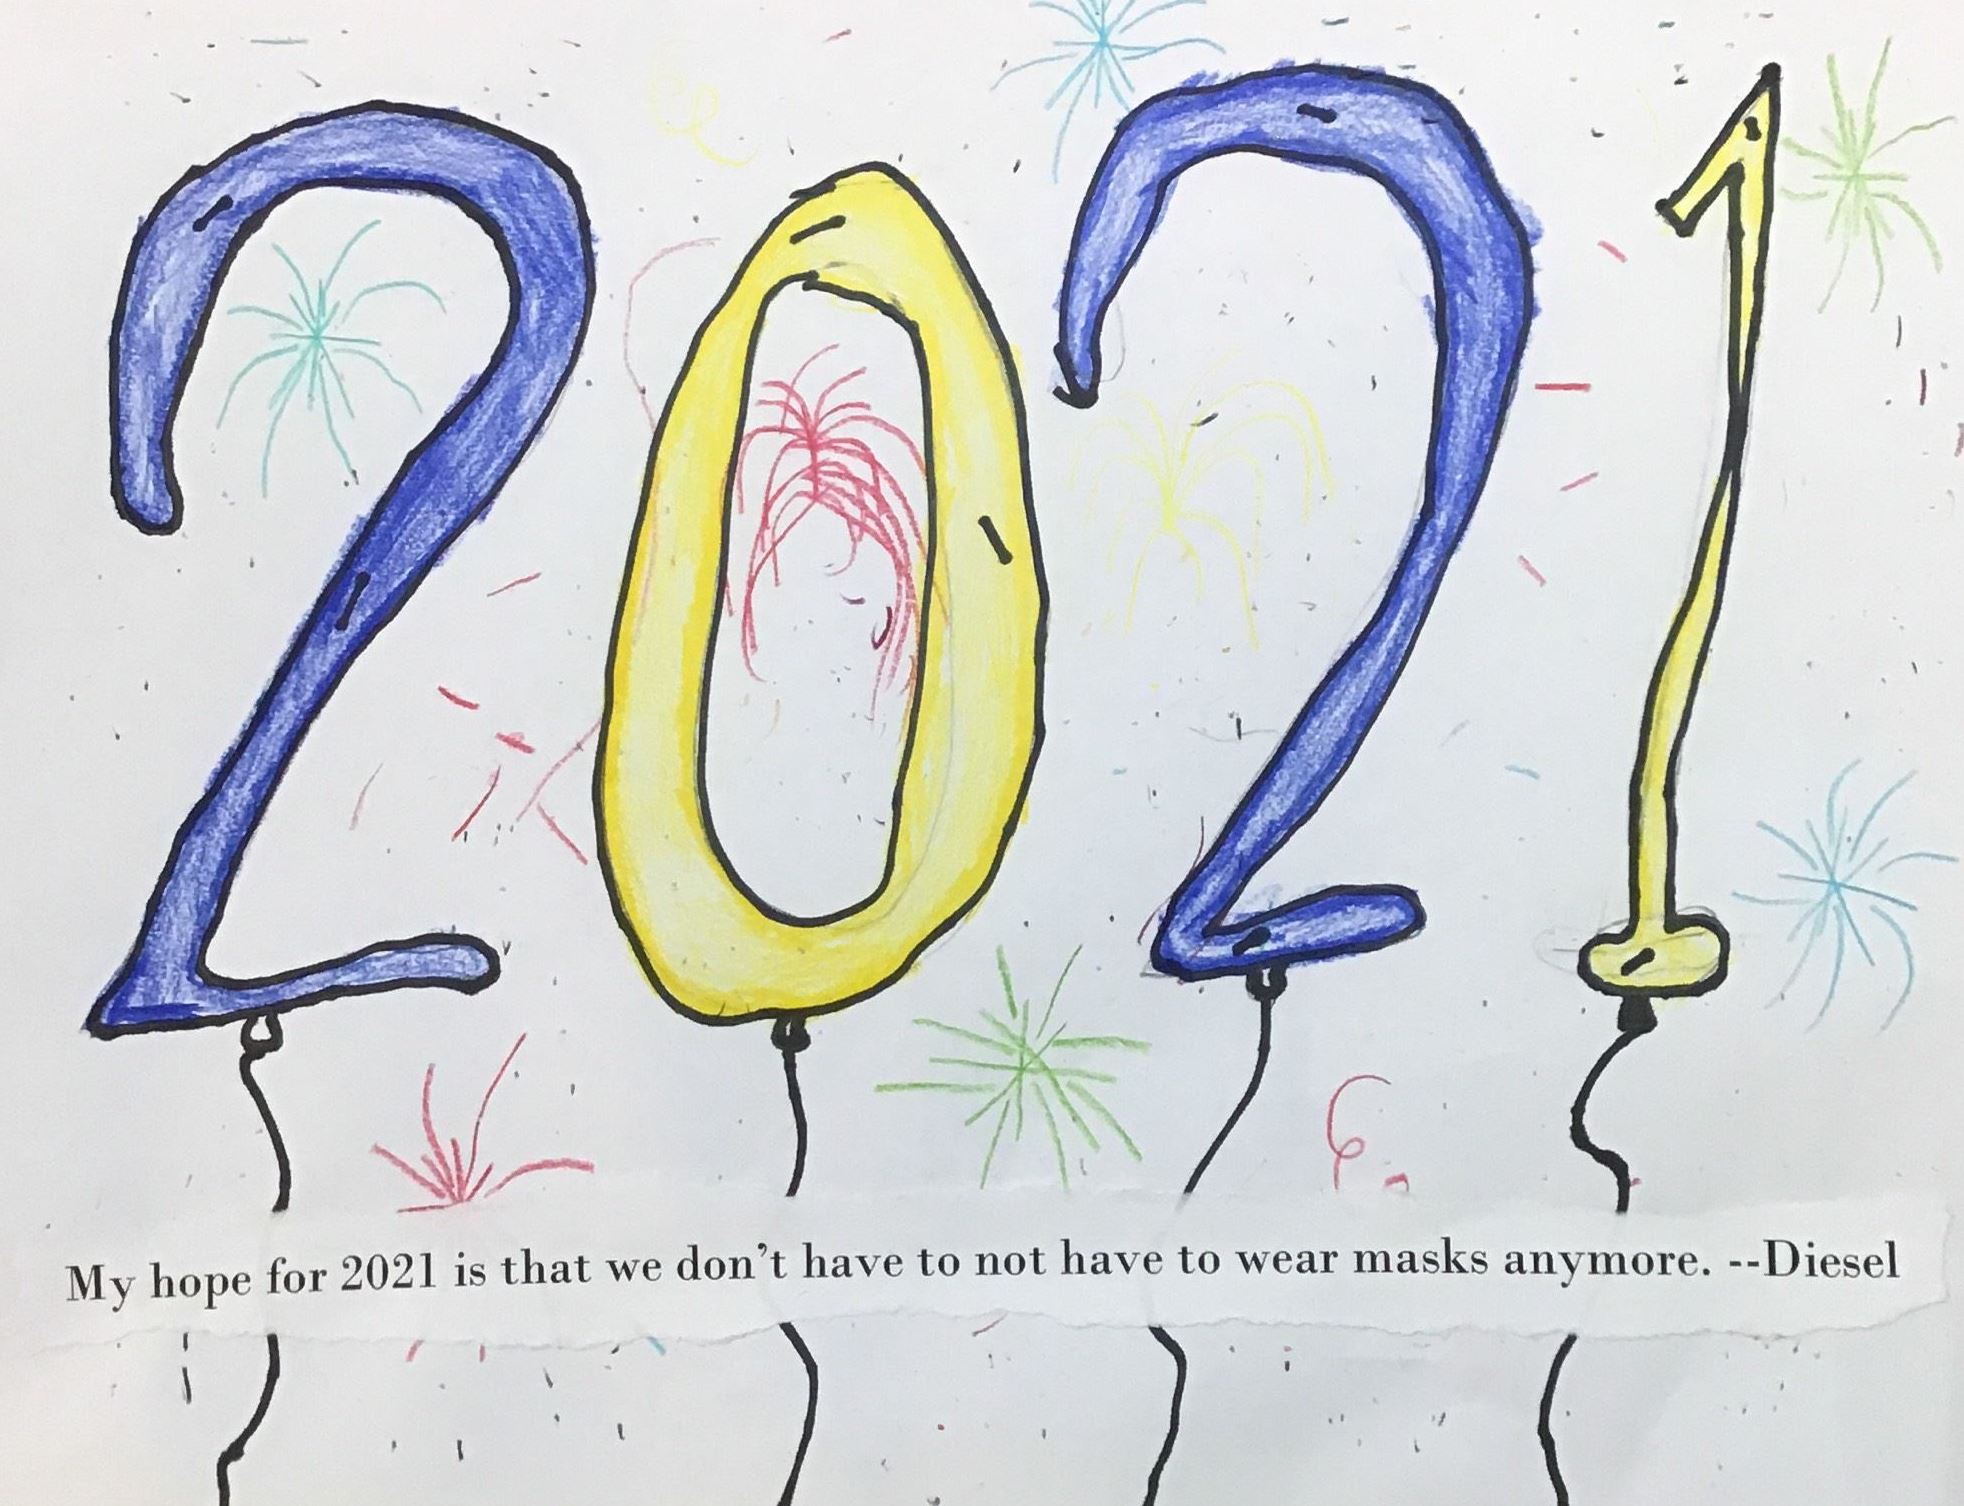 2021
My hope for 2021 is that we don't have to not have to wear masks anymore. --Diesel